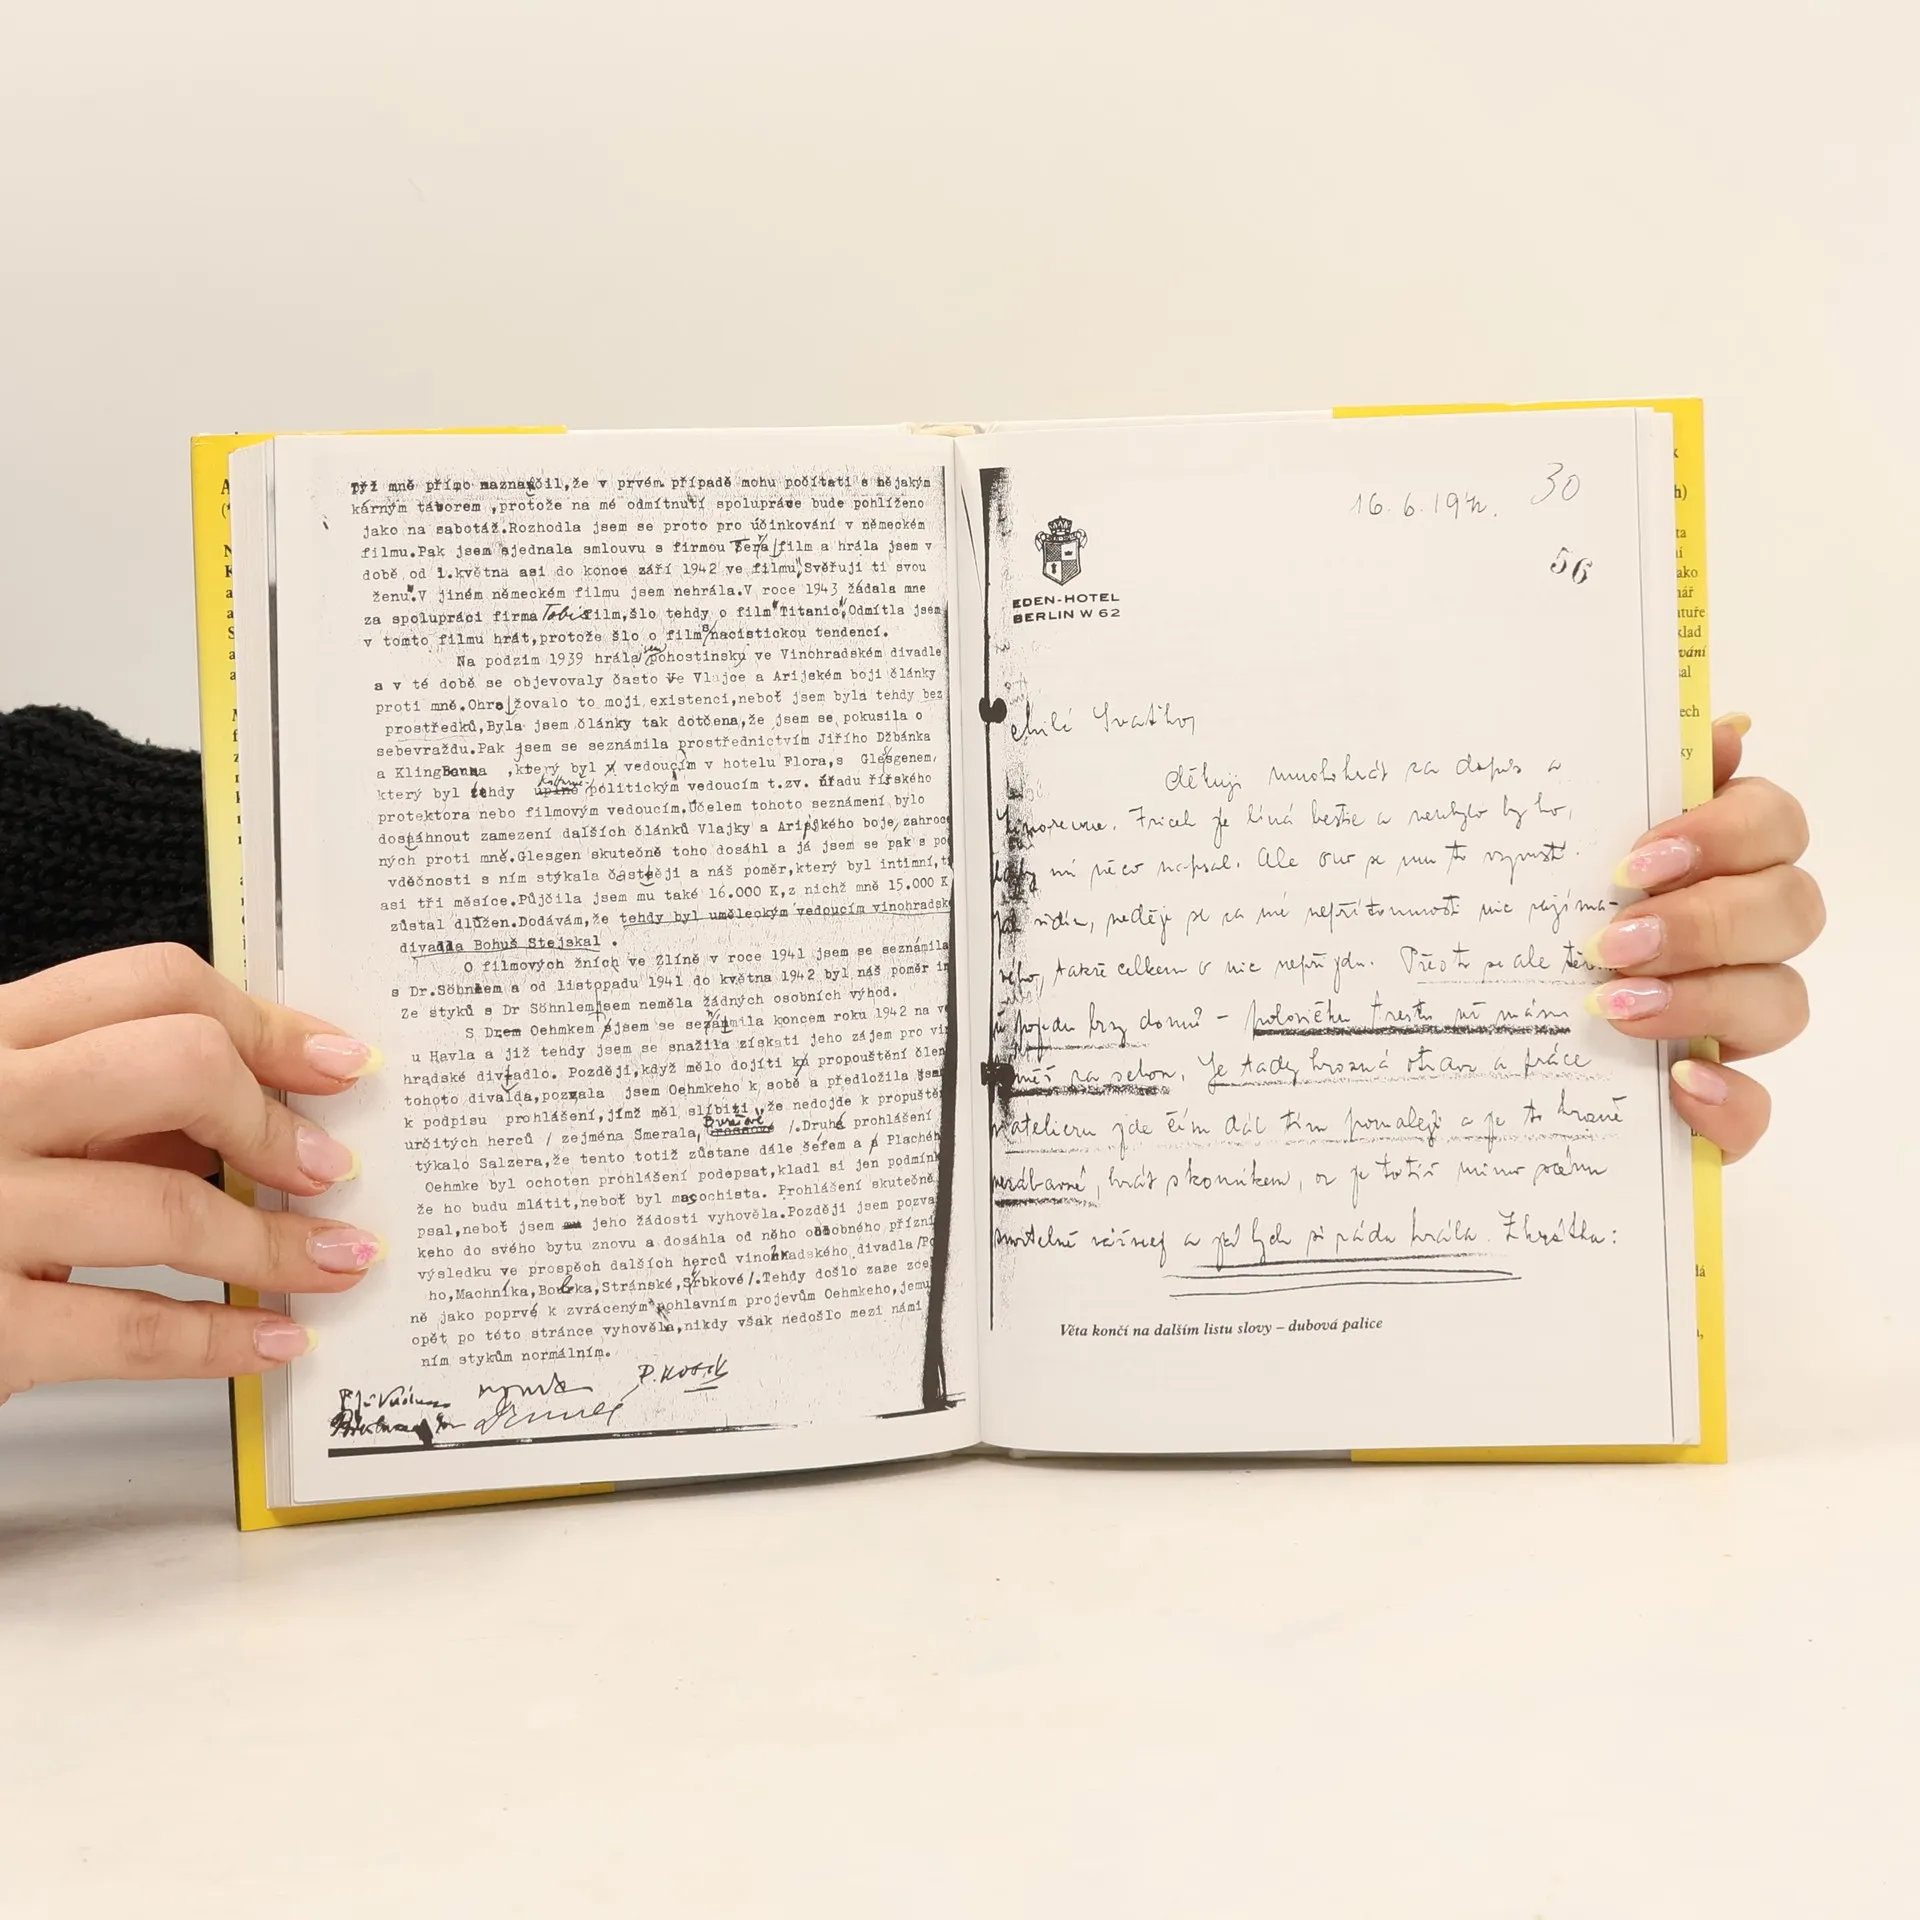 Týž mně přímo naznačil,že v prvém případě mohu počítati s nějakým
kárným táborem ,protože na mé odmítnutí spolupráce bude pohlíženo
jako na sabotáž.Rozhodla jsem se proto pro účinkování v německém
filmu.Pak jsem sjednala smlouvu s firmou Terra film a hrála jsem v
době od 1.května asi do konce září 1942 ve filmu"Svěřuji ti svou
ženu".V jiném německém filmu jsem nehrála.V roce 1943 žádala mne
za spolupráci firma Tobis film,šlo tehdy o film"Titanic".Odmítla jsem
v tomto filmu hrát,protože šlo o film s nacistickou tendencí.
Na podzim 1939 hrála jsem pohostinsku ve Vinohradském divadle
a v té době se objevovaly často ve Vlajce a Arijském boji články
proti mně.Ohrožovalo to moji existenci,neboť jsem byla tehdy bez
prostředků,Byla jsem články tak dotčena,že jsem se pokusila o
sebevraždu.Pak jsem se seznámila prostřednictvím Jiřího Džbánka
a Kling ,který byl vedoucím v hotelu Flora,s Glesgenem,
který byl tehdy politickým vedoucím t.zv. úřadu říšského
protektora nebo filmovým vedoucím.Účelem tohoto seznámení bylo
dosáhnout zamezení dalších článků Vlajky a Arijského boje,zahroc
ných proti mně.Glesgen skutečně toho dosáhl a já jsem se pak s po
vděčnosti s ním stýkala častěji a náš poměr,který byl intimní,t
asi tři měsíce.Půjčila jsem mu také 16.000 K,z nichž mně 15.000 K
zůstal dlužen.Dodávám,že tehdy byl uměleckým vedoucím vinohradsk
divadla Bohuš Stejskal .
O filmových žních ve Zlíně v roce 1941 jsem se seznámila
s Dr.Söhnlem a od listopadu 1941 do května 1942 byl náš poměr in
Ze styků s Dr Söhnlem jsem neměla žádných osobních výhod.
S Drem Oehmkem jsem se seznámila koncem roku 1942 na v
u Havla a již tehdy jsem se snažila získati jeho zájem pro vi
hradské divadlo. Později,když mělo dojíti ku propouštění člen
tohoto divalda,pozvala jsem Oehmkeho k sobě a předložila jsem
k podpisu prohlášení,jímž měl slíbiti,že nedojde k propuště
určitých herců / zejména Smerala, Burešové /.Druhé prohlášení
týkalo Salzera,že tento totiž zůstane dále šéfem a Plachéh
Oehmke byl ochoten prohlášení podepsat,kladl si jen podmínk
že ho budu mlátit,neboť byl masochista. Prohlášení skutečně
psal,neboť jsem jeho žádosti vyhověla.Později jsem pozva
keho do svého bytu znovu a dosáhla od něho osobného přízni
výsledku ve prospěch dalších herců vinohradského divadla/Po
ho,Machníka,Bourka,Stránské,Srbkové/.Tehdy došlo zase zce
ně jako poprvé k zvráceným pohlavním projevům Oehmkeho,jemu
opět po této stránce vyhověla,nikdy však nedošlo mezi námi
ním stykům normálním.
P. Kosík
30
16. 6. 1942.
56
EDEN-HOTEL
BERLIN W 62
milé
děkuji mnohokrát za dopis a
Fricek je líná bestie a nebylo by ho,
mi něco napsal. Ale on se mu to
vidíš, neděje se za mé nepřítomnosti nic zajíma-
vého, takže celkem o nic nepřijdu. Přesto se ale
pojedu brzy domů – polovičku trestu už mám
za sebou. Je tady hrozná otrava a práce
v atelieru jde čím dál tím pomaleji a je to hrozně
nezábavné, hrát s komikem, on je totiž mimo scénu
smrtelně vážný a jak bych si ráda hrála. Zkrátka:
Věta končí na dalším listu slovy – dubová palice